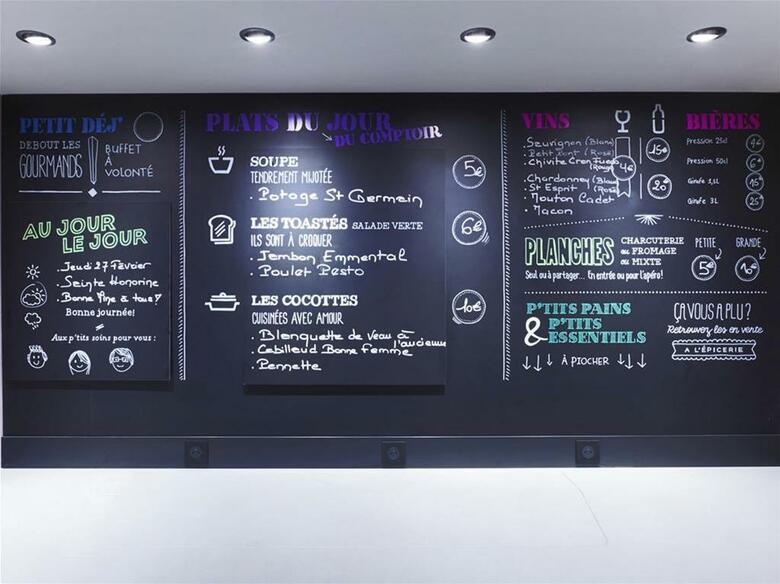 PETIT DÉJ'
DEBOUT LES
GOURMANDS
!
BUFFET
À
VOLONTÉ
AU JOUR
LE JOUR
Jeudi 27 Février
Sainte Honorine
Bonne à tous!
Bonne journée!
Aux p'tits soins pour vous :
PLATS DU JOUR
DU COMPTOIR
SOUPE
TENDREMENT MIJOTÉE
. Potage St Germain
5€
LES TOASTÉS SALADE VERTE
ILS SONT À CROQUER
. Jambon Emmental
. Poulet Pesto
6€
LES COCOTTES
CUISINÉES AVEC AMOUR
. Blanquette de Veau à l'ancienne
. Cabillaud Bonne Femme
. Pennette
10€
VINS
Sauvignon (Blanc)
Petit Pont (Rosé)
Chivite Gran Feudo
(Rouge)
4€
15€
Chardonnay (Blanc)
St Esprit (Rouge)
Mouton Cadet
Macon
20€
BIÈRES
Pression 25cl 4€
Pression 50cl 6€
Girafe 1,5L 15€
Girafe 3L 25€
PLANCHES
CHARCUTERIE
ou FROMAGE
ou MIXTE
Seul ou à partager... En entrée ou pour l'apéro!
PETITE
5€
GRANDE
10€
P'TITS PAINS
& P'TITS
ESSENTIELS
À PIOCHER
ÇA VOUS A PLU?
Retrouvez les en vente
A L'ÉPICERIE